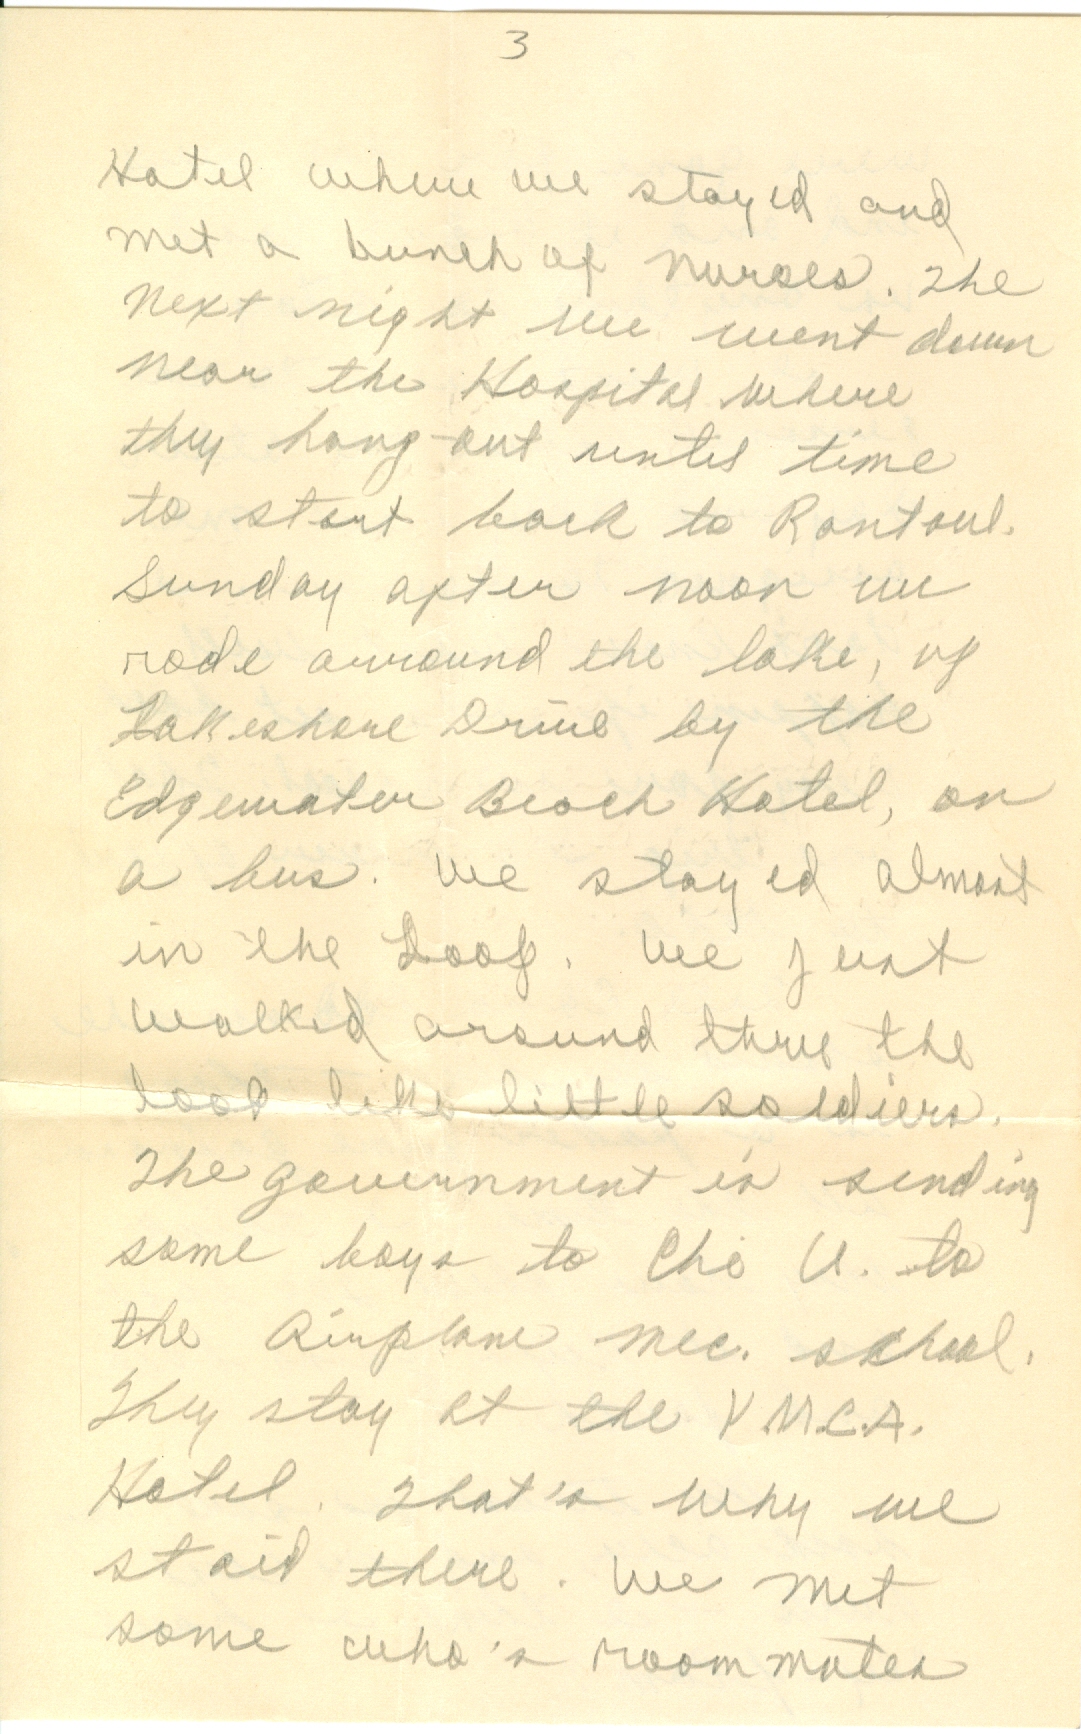 3
Hotel where we stayed and
met a bunch of nurses. The
next night we went down
near the Hospital where
they hang-out until time
to start back to Rantoul.
Sunday after noon we
rode arround the lake, up
Lakeshore Drive by the
Edgewater Beach Hotel, on
a bus. We stayed almost
in the Loop. We just
walked around thru the
loop like little soldiers.
The government is sending
some boys to Chi U. to
the Airplane mec. school.
They stay at the Y.M.C.A.
Hotel. That's why we
staid there. We met
some who's roommates